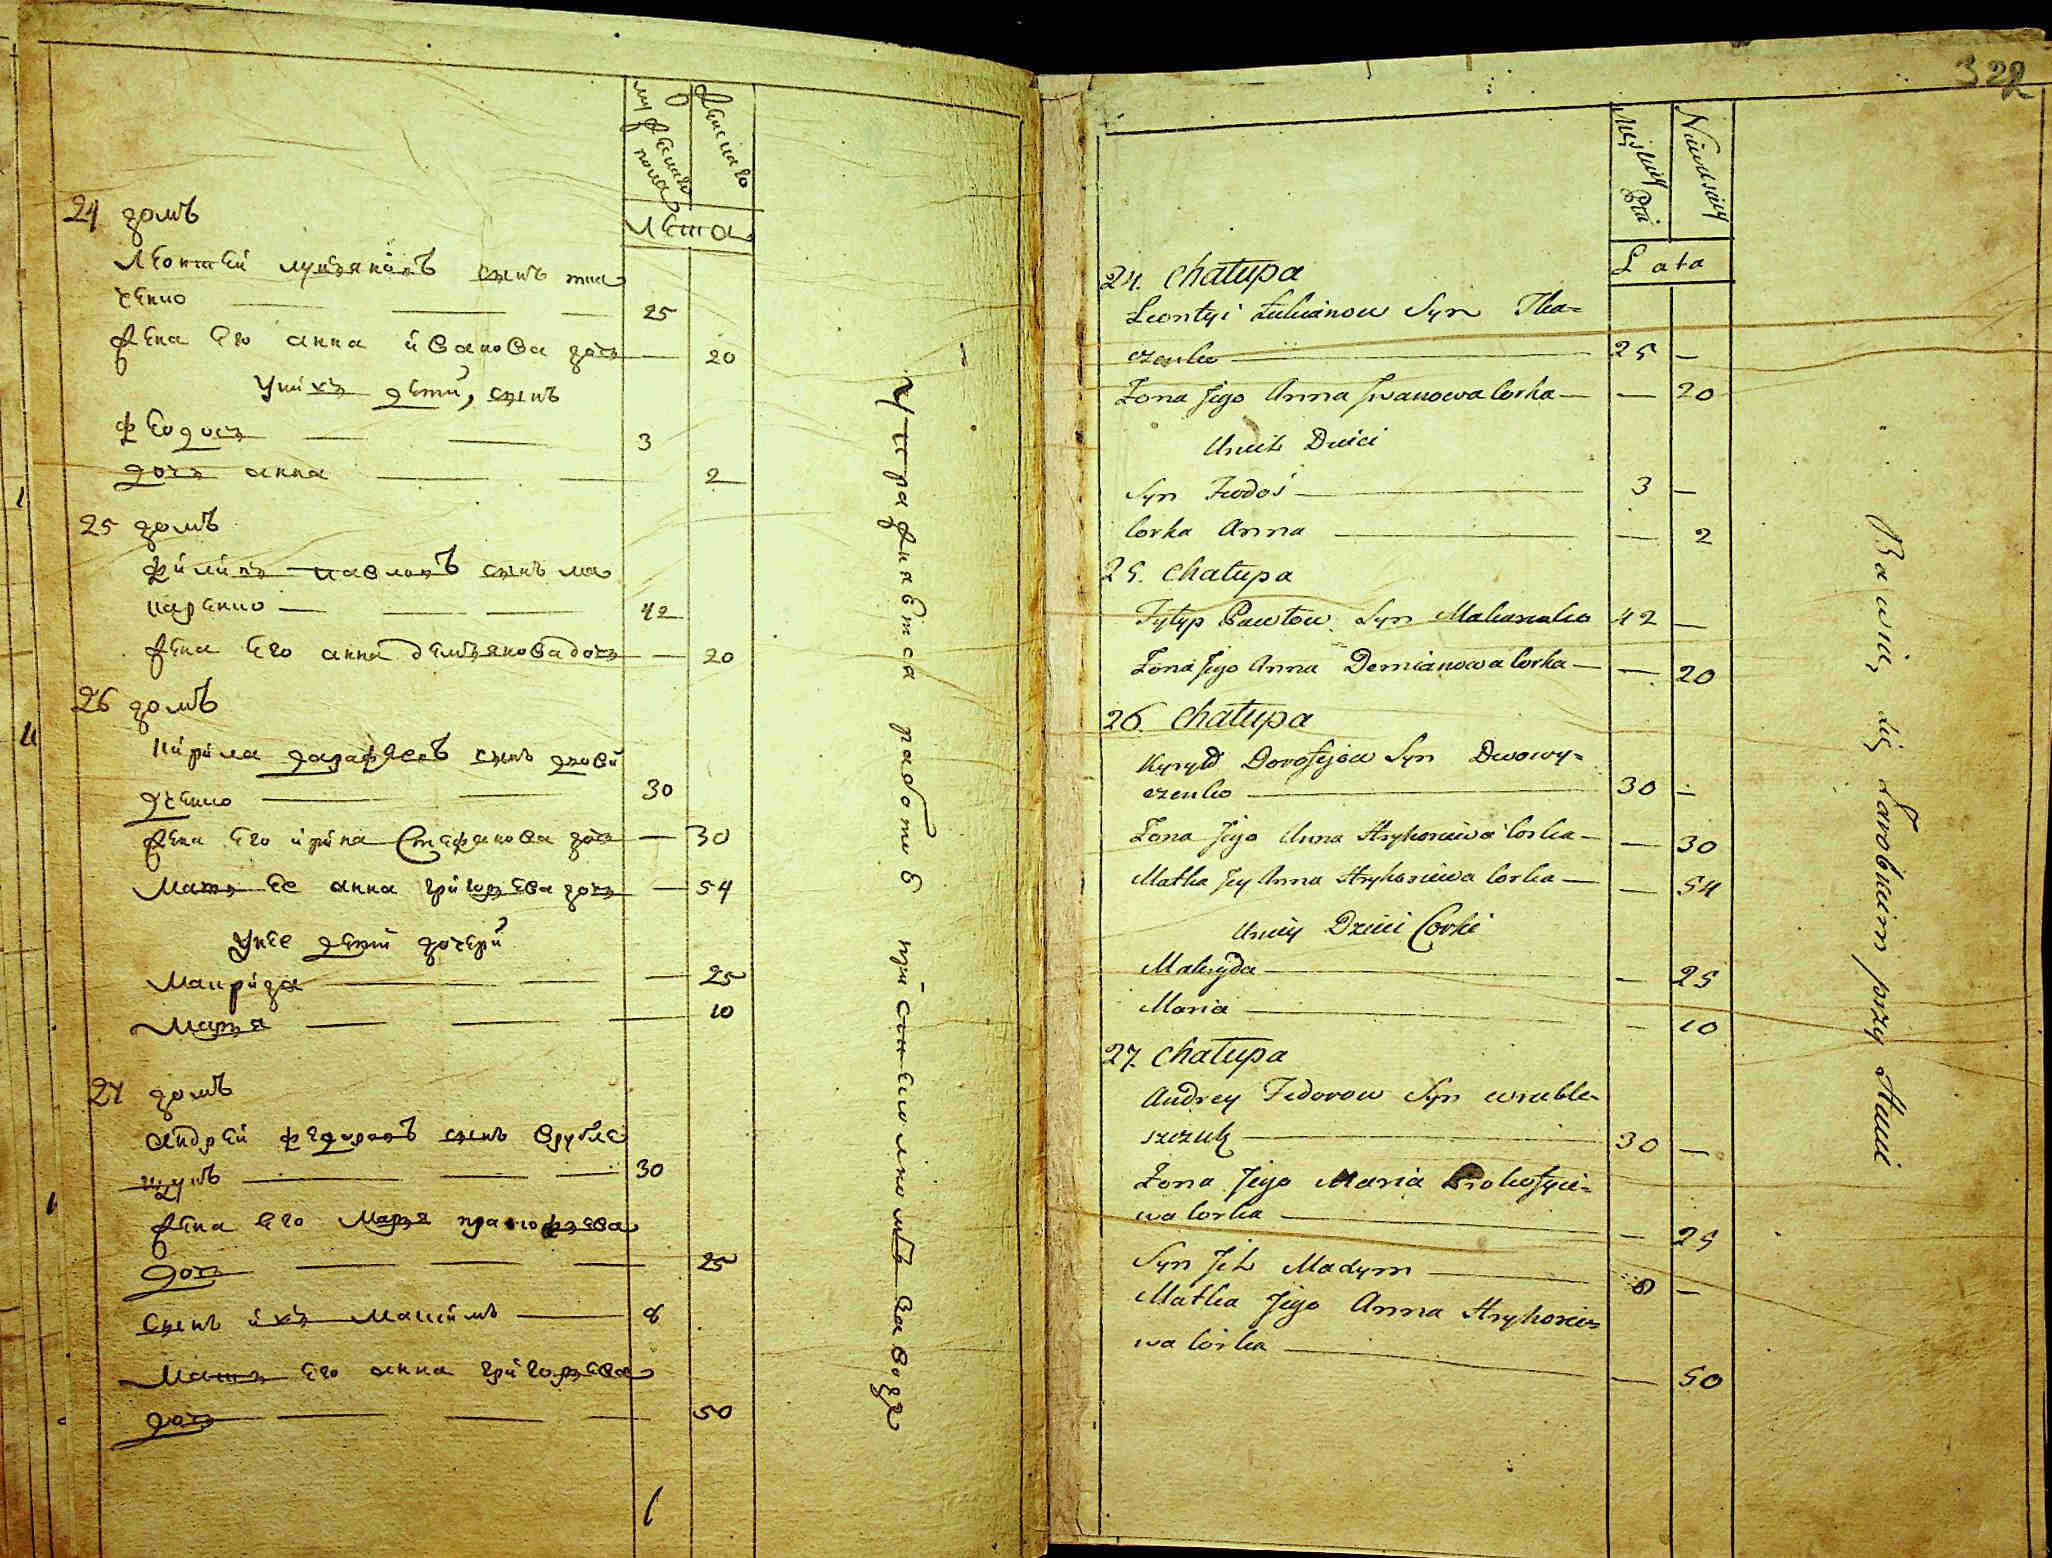 мужеска пола
женскаго
лета
24 домъ
Леонтей лукъяновъ сынъ тка
ченко 25
жена его анна иванова дочь 20
У них дети, сынъ
феодось 3
дочь анна 2
25 домъ
филипъ павловъ сынъ ма
каренко 42
жена его анна демъянова дочь 20
26 домъ
кирила дарафеевъ сынъ дкови
дченко 30
жена его ирина Стефанова дочь 30
Мать ее анна григорьева дочь 54
У нее дети дочери
Макрида 25
Марья 10
27 домъ
андрей федоровъ сынъ врубле
щукъ 30
жена его Марья пракофьева
дочь 25
Сынъ ихъ Максимъ 8
Мать его анна григорьева
дочь 50
упражняется работою при селитряномъ заводе
322
Męskiey Płci
Niewieściey
Lata
24. Chałupa
Leontyi Łukianow Syn Tka=
czenko 25 —
Żona Jego Anna Jwanowa Corka — 20
U nich Dzieci
Syn Fedoś 3 —
Corka Anna — 2
25. Chałupa
Fyłyp Pawłow Syn Makarenko 42 —
Żona Jego Anna Demianowa Corka — 20
26. Chałupa
Kyryło Dorofejow Syn Dwowy=
czenko 30 —
Żona Jego Anna Hryhoriewa Corka — 30
Matka Jey Anna Hryhoriewa Corka — 54
U niey Dzieci Corki
Makryda — 25
Maria — 10
27. Chałupa
Andrey Fedorow Syn wruble=
szczuk 30 —
Żona Jego Maria Prokofyie=
wa Corka — 25
Syn Jch Maxym 8 —
Matka Jego Anna Hryhorie=
wa Corka — 50
Bawią się Zarobkiem przy Hucie